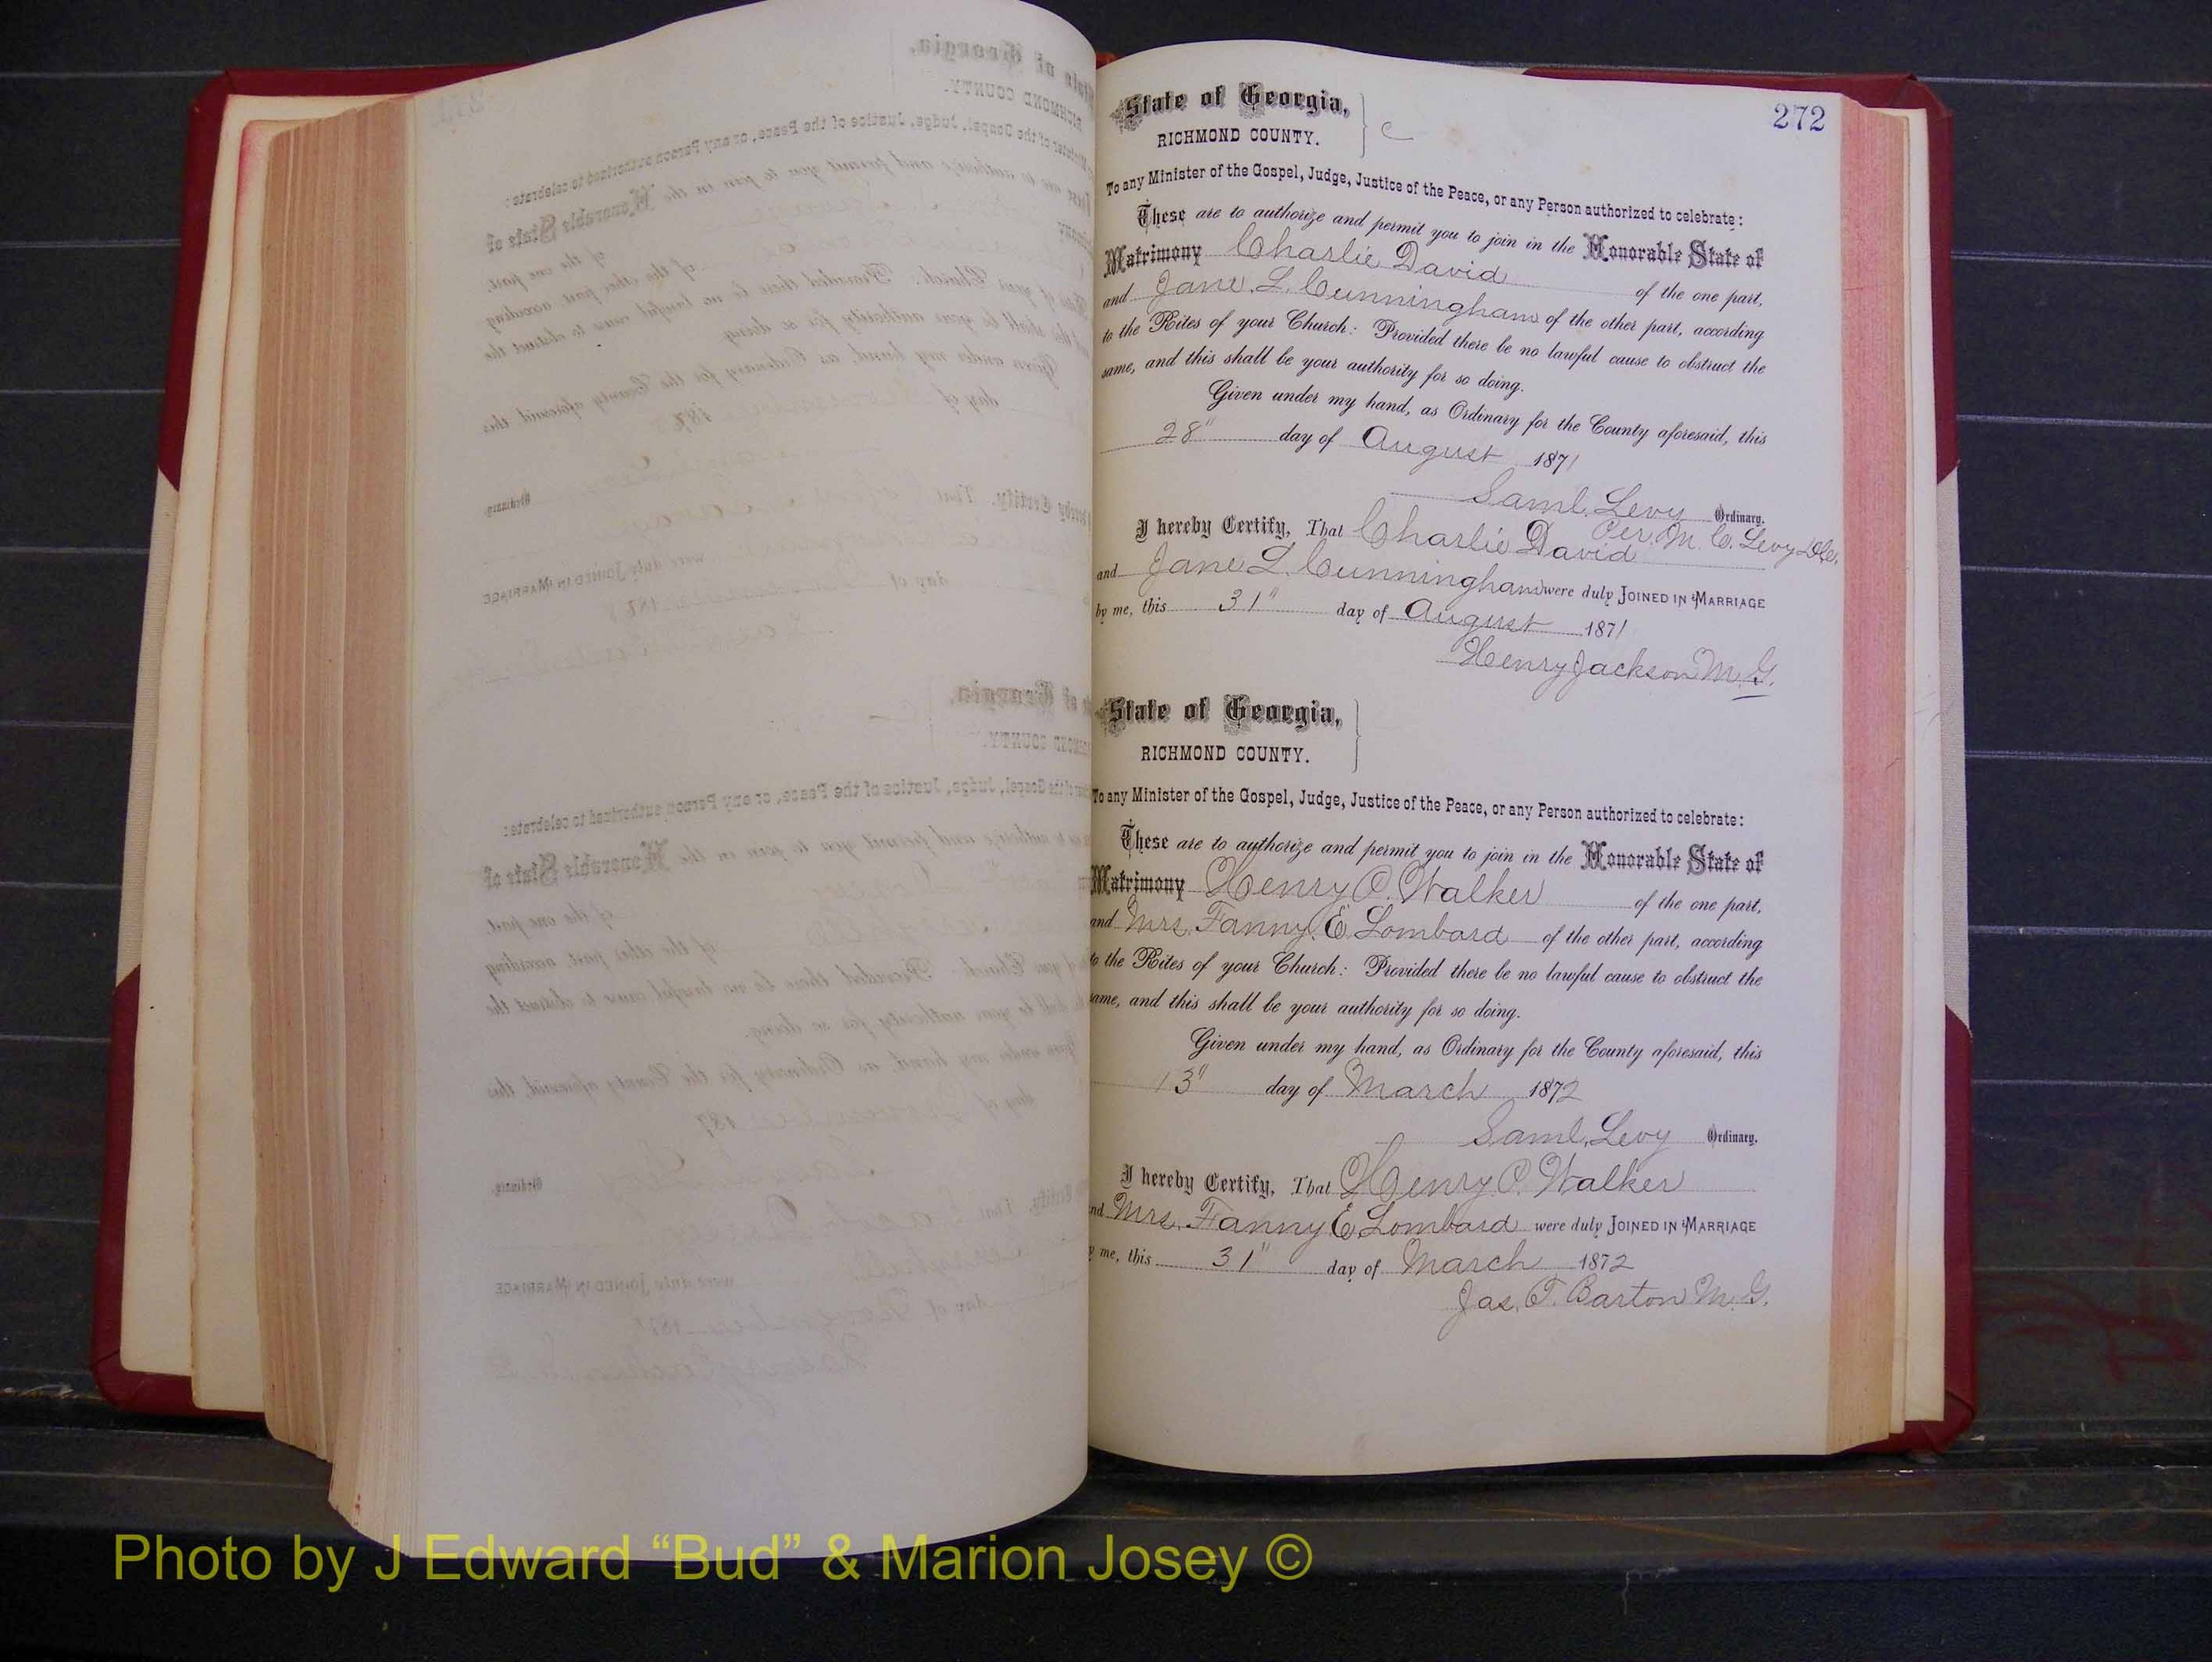 272
State of Georgia,
RICHMOND COUNTY.
To any Minister of the Gospel, Judge, Justice of the Peace, or any Person authorized to celebrate:
These are to authorize and permit you to join in the Honorable State of
Matrimony Charlie David of the one part,
and Jane L. Cunningham of the other part, according
to the Rites of your Church: Provided there be no lawful cause to obstruct the
same, and this shall be your authority for so doing.
Given under my hand, as Ordinary for the County aforesaid, this
28" day of August 1871
Saml. Levy Ordinary.
Per. M. C. Levy
I hereby Certify, That Charlie David
and Jane L. Cunningham were duly JOINED IN MARRIAGE
by me, this 31" day of August 1871
Henry Jackson M. G.
State of Georgia,
RICHMOND COUNTY.
To any Minister of the Gospel, Judge, Justice of the Peace, or any Person authorized to celebrate:
These are to authorize and permit you to join in the Honorable State of
Matrimony Henry O. Walker of the one part,
and Mrs. Fanny E. Lombard of the other part, according
to the Rites of your Church: Provided there be no lawful cause to obstruct the
same, and this shall be your authority for so doing.
Given under my hand, as Ordinary for the County aforesaid, this
13" day of March 1872
Saml. Levy Ordinary.
I hereby Certify, That Henry O. Walker
and Mrs. Fanny E. Lombard were duly JOINED IN MARRIAGE
by me, this 31" day of March 1872
Jas. T. Barton M. G.
Photo by J Edward “Bud” & Marion Josey ©